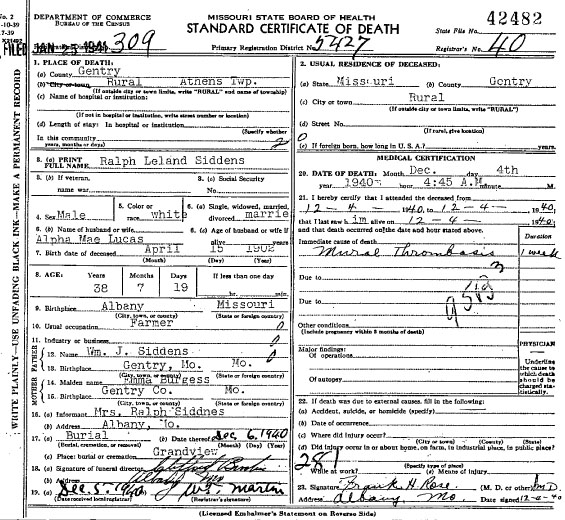 DEPARTMENT OF COMMERCE
BUREAU OF THE CENSUS
MISSOURI STATE BOARD OF HEALTH
STANDARD CERTIFICATE OF DEATH
42482
State File No.
FILED JAN 1941 309
Primary Registration District No. 5427
Registrar's No. 40
WRITE PLAINLY—USE UNFADING BLACK INK—MAKE A PERMANENT RECORD
1. PLACE OF DEATH:
(a) County Gentry
(b) City or town Rural Athens Twp.
(If outside city or town limits, write "RURAL" and name of township)
(c) Name of hospital or institution:
(If not in hospital or institution, write street number or location)
(d) Length of stay: In hospital or institution
(Specify whether
In this community
years, months or days)
3. (a) PRINT FULL NAME Ralph Leland Siddens
3. (b) If veteran, name war
3. (c) Social Security No.
4. Sex Male
5. Color or race white
6. (a) Single, widowed, married, divorced marrie
6. (b) Name of husband or wife
Alpha Mae Lucas
6. (c) Age of husband or wife if alive years
7. Birth date of deceased April 15 1902
(Month) (Day) (Year)
8. AGE: Years Months Days If less than one day
38 7 19 hr. min.
9. Birthplace Albany Missouri
(City, town, or county) (State or foreign country)
10. Usual occupation Farmer
11. Industry or business
FATHER
12. Name Wm. J. Siddens
13. Birthplace Gentry, Mo. Mo.
(City, town, or county) (State or foreign country)
MOTHER
14. Maiden name Emma Burgess
15. Birthplace Gentry Co. Mo.
(City, town, or county) (State or foreign country)
16. (a) Informant Mrs. Ralph Siddnes
(b) Address Albany, Mo.
17. (a) Burial (b) Date thereof Dec 6, 1940
(Burial, cremation, or removal) (Month) (Day) (Year)
(c) Place: burial or cremation Grandview
18. (a) Signature of funeral director
(b) Address Albany Mo
19. (a) Dec. 5. 1940 (b) Martin
(Date received local registrar) (Registrar's signature)
2. USUAL RESIDENCE OF DECEASED:
(a) State Missouri (b) County Gentry
(c) City or town Rural
(If outside city or town limits, write "RURAL")
(d) Street No.
(If rural, give location)
(e) If foreign born, how long in U. S. A.? years.
MEDICAL CERTIFICATION
20. DATE OF DEATH: Month Dec. day 4th
year 1940 hour 4:45 A.M minute M.
21. I hereby certify that I attended the deceased from
12 - 4 - 1940, to 12 - 4 - 1940,
that I last saw him alive on 12 - 4 - 1940,
and that death occurred on the date and hour stated above.
Duration
Immediate cause of death
Mural Thrombasis 1 week
Due to
Due to
Other conditions
(Include pregnancy within 3 months of death)
Major findings:
Of operations
Of autopsy
PHYSICIAN
Underline the cause to which death should be charged statistically.
22. If death was due to external causes, fill in the following:
(a) Accident, suicide, or homicide (specify)
(b) Date of occurrence
(c) Where did injury occur?
(City or town) (County) (State)
(d) Did injury occur in or about home, on farm, in industrial place, in public place?
(Specify type of place)
While at work? (e) Means of injury
23. Signature Frank H. Rose (M. D. or other) M.D.
Address Albany Mo. Date signed
(Licensed Embalmer's Statement on Reverse Side)